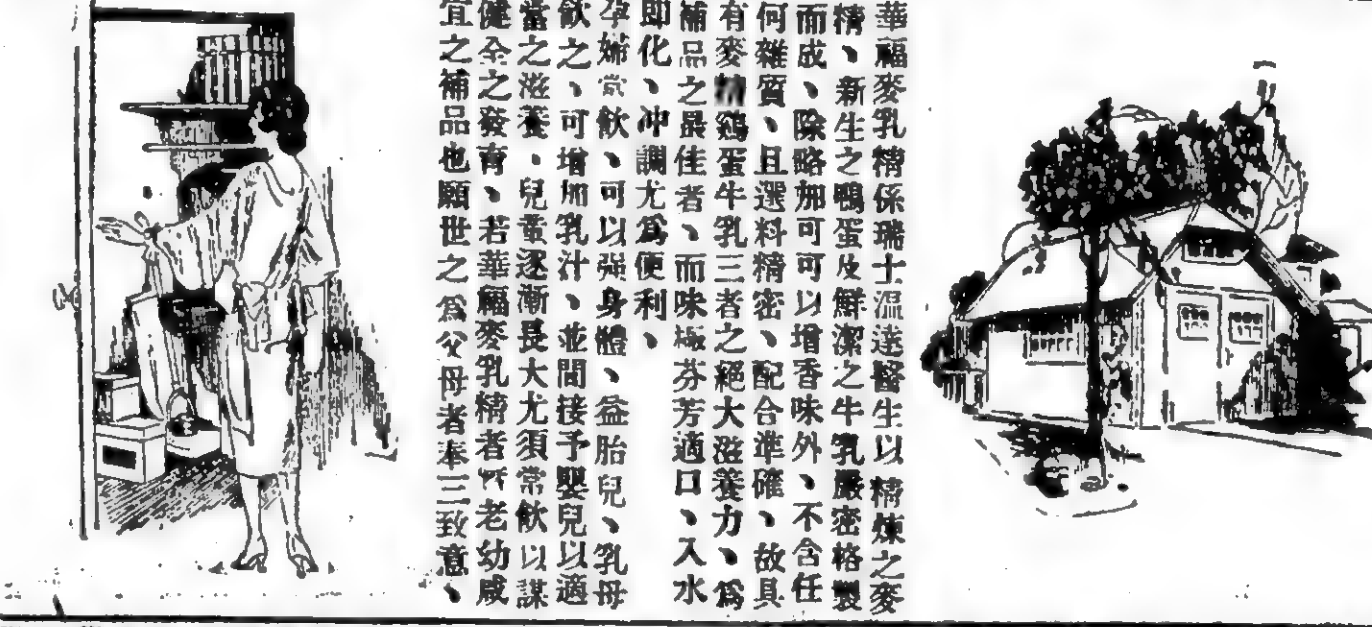 華福麥乳精係瑞士溫達醫生以精煉之麥
精、新生之鴨蛋及鮮潔之牛乳嚴密格製
而成、除略加可可以增香味外、不含任
何雜質、且選料精密、配合準確、故具
有麥精鷄蛋牛乳三者之絕大滋養力、爲
補品之最佳者、而味極芬芳適口、入水
即化、冲調尤爲便利、
孕婦常飲、可以强身體、益胎兒、乳母
飲之、可增加乳汁、並間接予嬰兒以適
當之滋養、兒童逐漸長大尤須常飲以謀
健全之發育、若華福麥乳精者老幼咸
宜之補品也願世之爲父母者奉三致意、